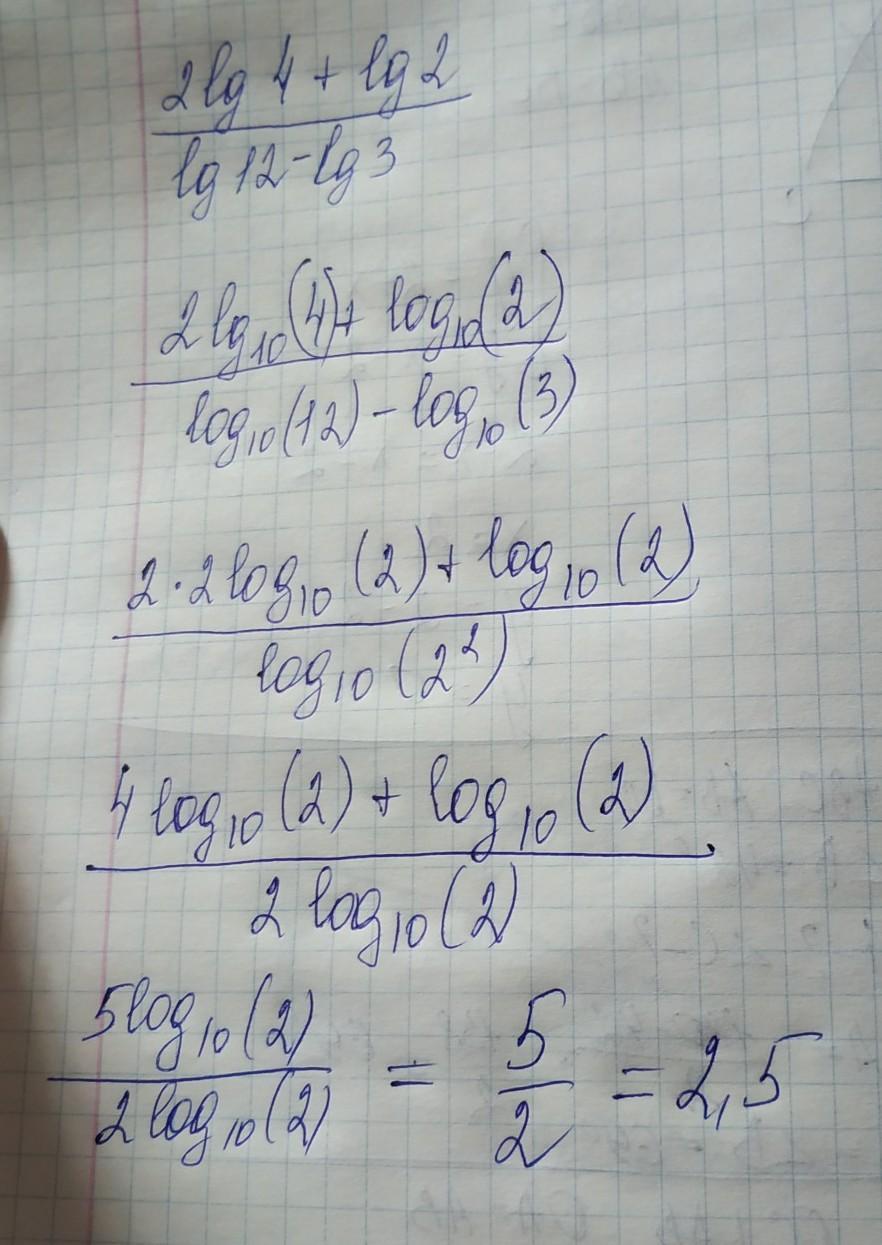 2lg 4 + lg 2
lg 12 - lg 3
2lg₁₀(4) + log₁₀(2)
log₁₀(12) - log₁₀(3)
2·2log₁₀(2) + log₁₀(2)
log₁₀(2²)
4log₁₀(2) + log₁₀(2)
2log₁₀(2)
5log₁₀(2)
2log₁₀(2)
= 5/2 = 2,5